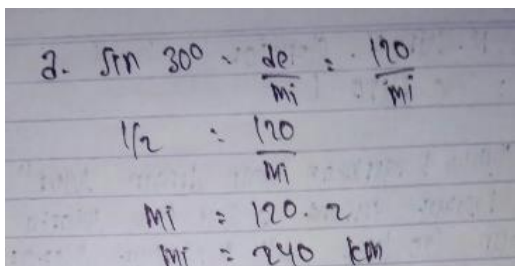 a. sin 30° = de/mi = 120/mi
1/2 = 120/mi
mi = 120 . 2
mi = 240 km